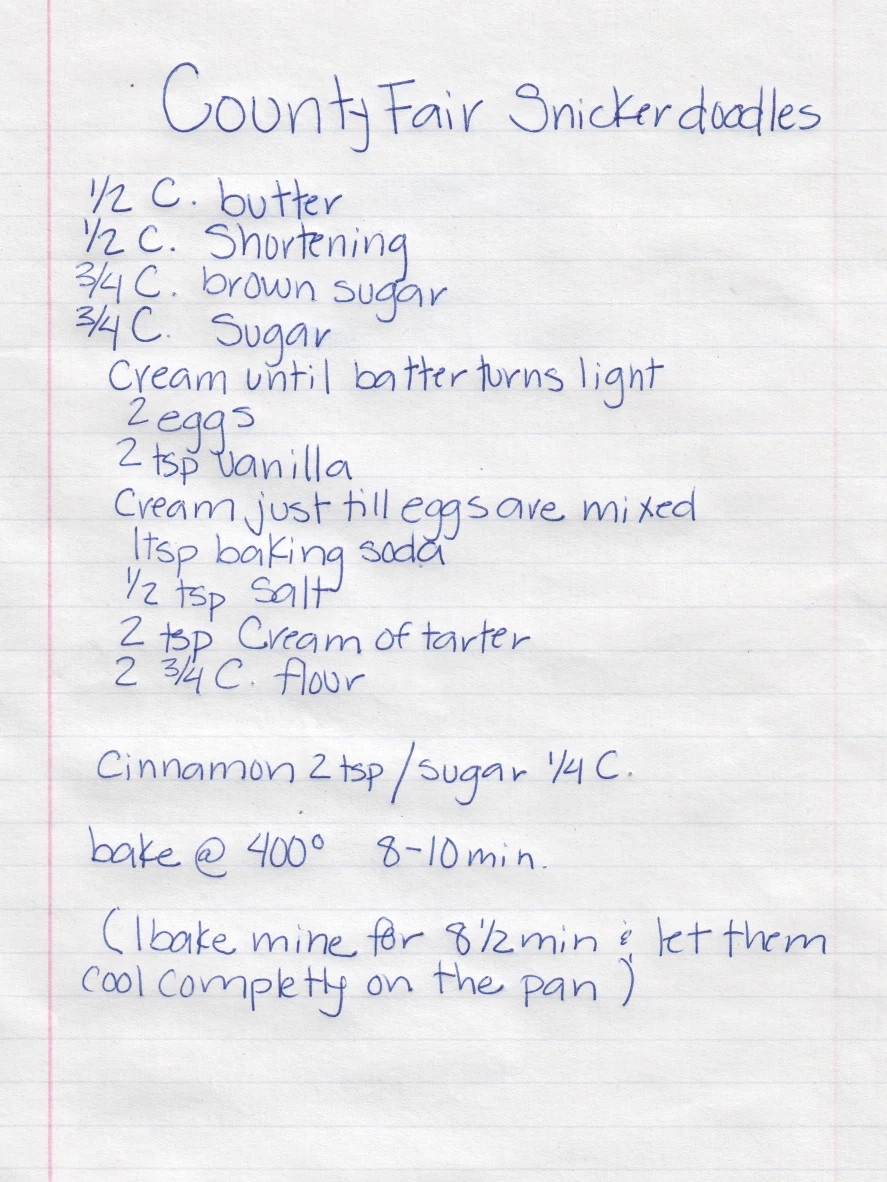 County Fair Snickerdoodles
1/2 C. butter
1/2 C. Shortening
3/4 C. brown sugar
3/4 C. Sugar
Cream until batter turns light
2 eggs
2 tsp vanilla
Cream just till eggs are mixed
1 tsp baking soda
1/2 tsp Salt
2 tsp Cream of tarter
2 3/4 C. flour
Cinnamon 2 tsp / sugar 1/4 C.
bake @ 400° 8-10 min.
(I bake mine for 8 1/2 min & let them
cool completly on the pan)